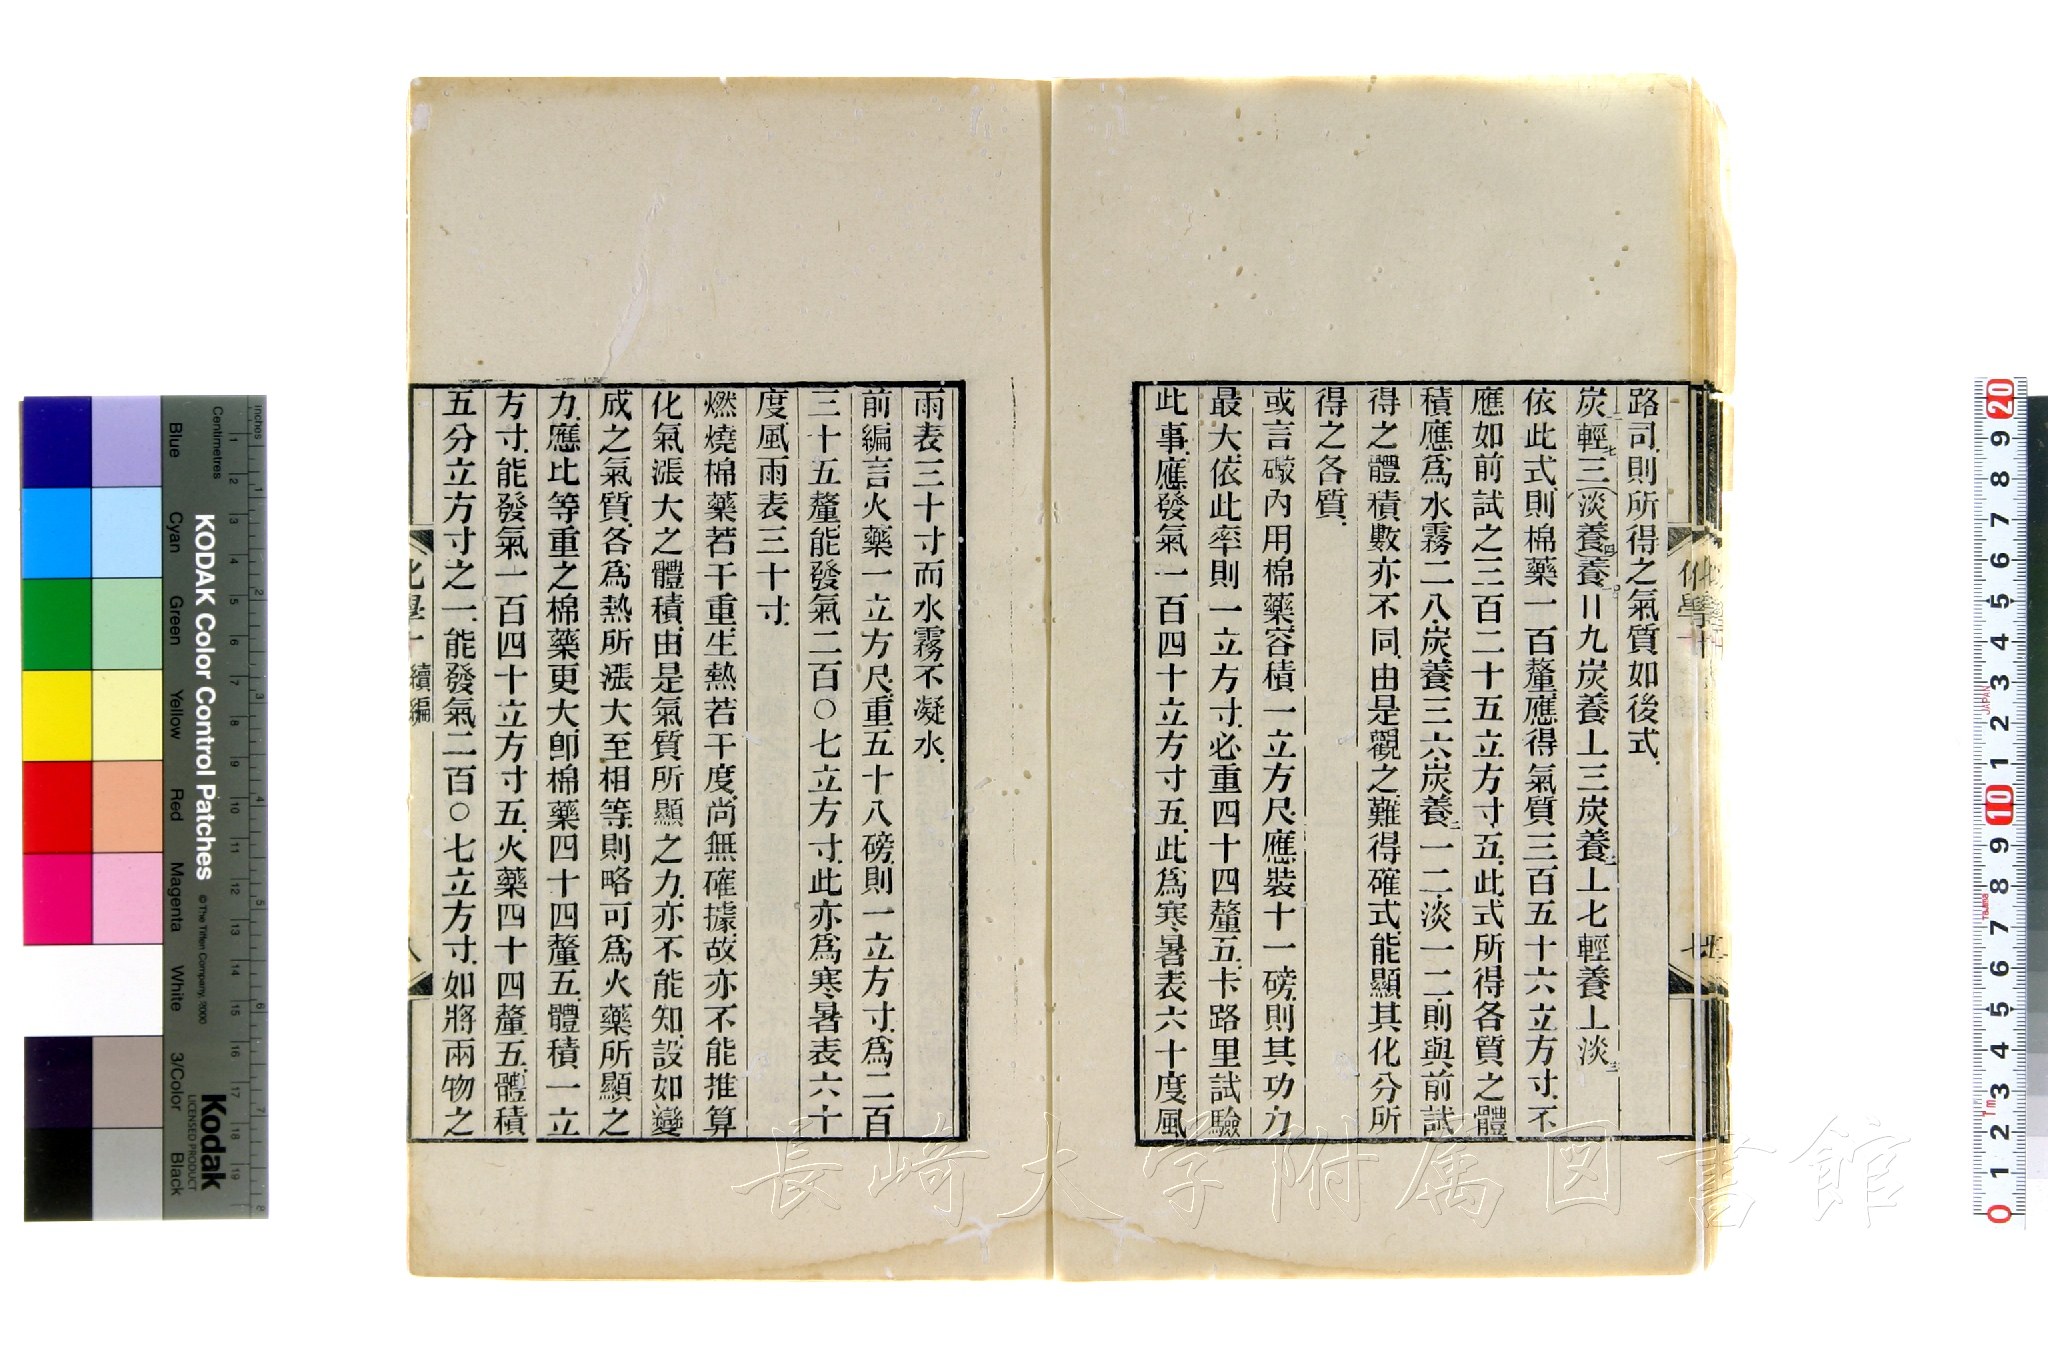 路司.則所得之氣質如後式.
炭二輕七三(淡養四)養二〢九炭養⊥三炭養二⊥七輕養⊥淡三
依此式則棉藥一百釐.應得氣質三百五十六立方寸.不
應如前試之三百二十五立方寸五.此式所得各質之體
積應爲水霧二八.炭養三六.炭養二一二.淡一二.則與前試
得之體積數亦不同.由是觀之.難得確式.能顯其化分所
得之各質.
或言礮內用棉藥容積一立方尺.應裝十一磅.則其功力
最大依此率則一立方寸.必重四十四釐五.卡路里試驗
此事.應發氣一百四十立方寸五.此爲寒暑表六十度風
雨表三十寸而水霧不凝水.
前編言火藥一立方尺.重五十八磅.則一立方寸.爲二百
三十五釐.能發氣二百〇七立方寸.此亦爲寒暑表六十
度.風雨表三十寸.
燃燒棉藥若干重.生熱若干度.尚無確據.故亦不能推算
化氣漲大之體積.由是氣質所顯之力.亦不能知.設如變
成之氣質.各爲熱所漲大至相等.則略可爲火藥所顯之
力.應比等重之棉藥更大.卽棉藥四十四釐五.體積一立
方寸.能發氣一百四十立方寸五.火藥四十四釐五.體積
五分立方寸之一.能發氣二百〇七立方寸.如將兩物之
化學十 續編
八
長崎大学附属図書館
KODAK Color Control Patches
© The Tiffen Company, 2000
Kodak
LICENSED PRODUCT
Centimetres
Inches
Blue
Cyan
Green
Yellow
Red
Magenta
White
3/Color
Black